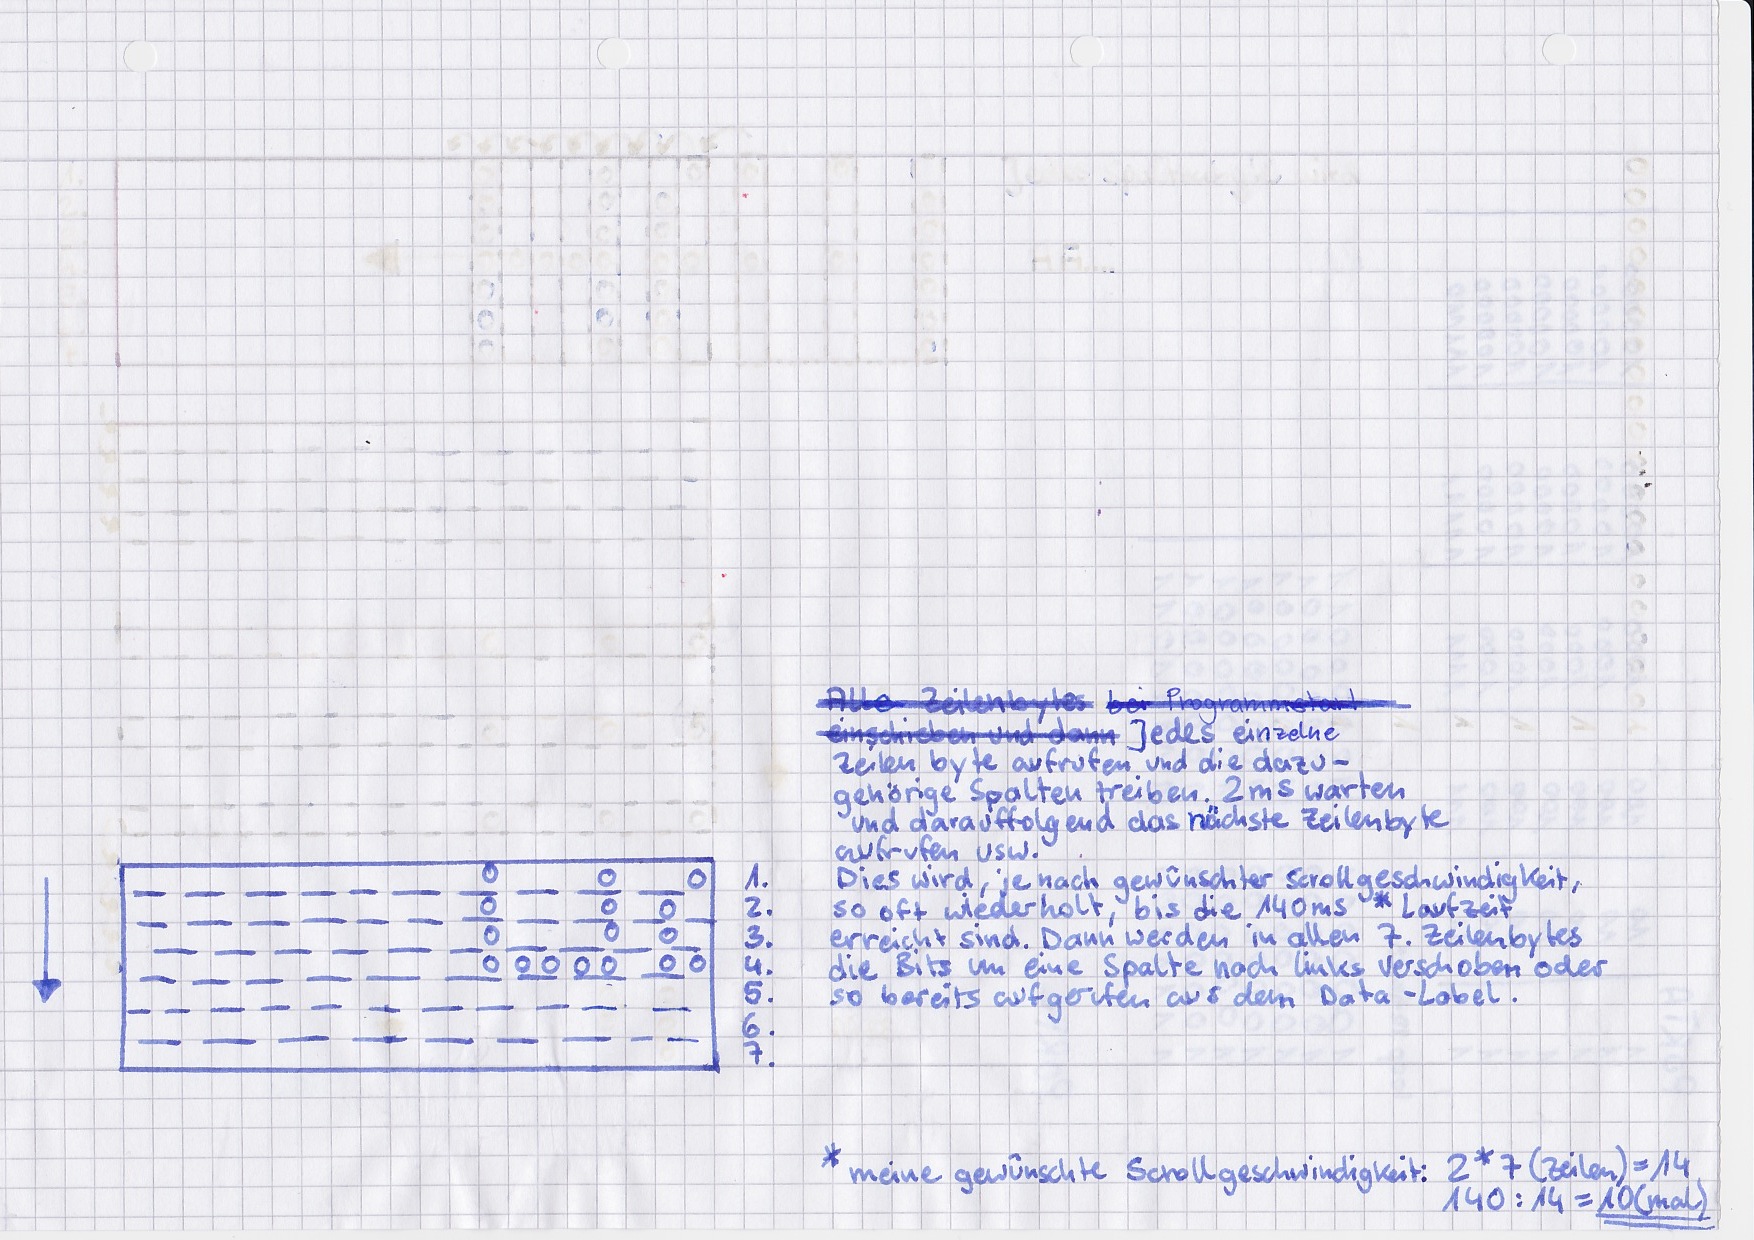 Alle Zeilenbytes bei Programmstart
einschieben und dann Jedes einzelne
Zeilenbyte aufrufen und die dazu-
gehörige Spalten treiben. 2ms warten
und darauffolgend das nächste Zeilenbyte
aufrufen usw.
Dies wird, je nach gewünschter Scrollgeschwindigkeit,
so oft wiederholt, bis die 140ms * Laufzeit
erreicht sind. Dann werden in allen 7. Zeilenbytes
die Bits um eine Spalte nach links verschoben oder
so bereits aufgerufen aus dem Data-Label.
1.
2.
3.
4.
5.
6.
7.
* meine gewünschte Scrollgeschwindigkeit: 2*7 (Zeilen)=14
140:14=10(mal)